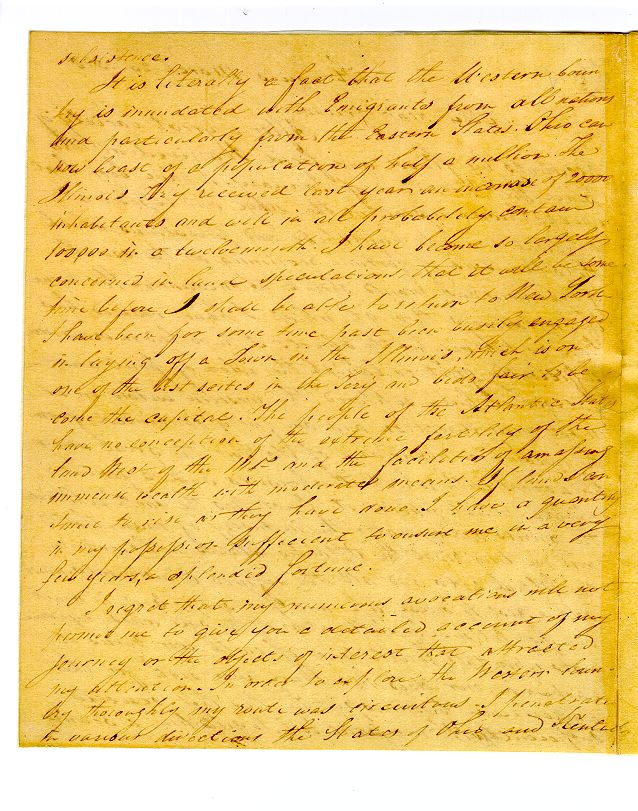 subsistence.
It is literally a fact that the Western Coun
try is inundated with Emigrants from all nations
and particularly from the Eastern States. Ohio can
now boast of a population of half a million. The
Illinois Ty received last year an increase of 20000
inhabitants and will in all probability contain
100000 in a twelvemonth I have become so largely
concerned in land speculations that it will be some
time before I shall be able to return to New York
I have been for some time past been busily engaged
in laying off a Town in the Illinois, which is on
one of the best scites in the Terry and bids fair to be
come the capital. The people of the Atlantic States
have no conception of the extreme fertility of the
land West of the Mts and the facilities of amassing
immense wealth with moderate means. If lands con
tinue to rise as they have done. I have a quantity
in my possession sufficient to ensure me in a very
few years, a splendid fortune.
I regret that my numerous avocations will not
permit me to give you a detailed account of my
journey or the objects of interest that attracted
my attention. In order to explore the Western Coun-
try thoroughly my route was circuitous. I penetrated
in various directions the States of Ohio and Kentucky